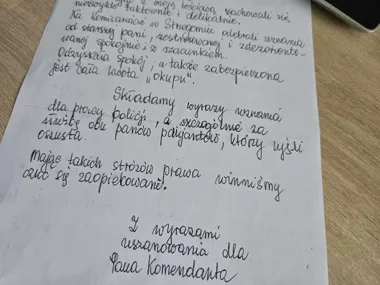 z moją teściową, zachowali się
niezwykle taktownie i delikatnie.
Na Komisariacie w Strzegomiu odebrali zeznania
od starszej pani, zestresowanej i zdezoriento-
wanej spokojnie i z szacunkiem.
Odzyskała spokój, a także zabezpieczona
jest cała kwota "okupu".
Składamy wyrazy uznania
dla pracy policji, a szczególnie za
służbę obu panów policjantów, którzy ujęli
oszusta.
Mając takich stróżów prawa winniśmy
czuć się zaopiekowani.
Z wyrazami
uszanowania dla
Pana Komendanta